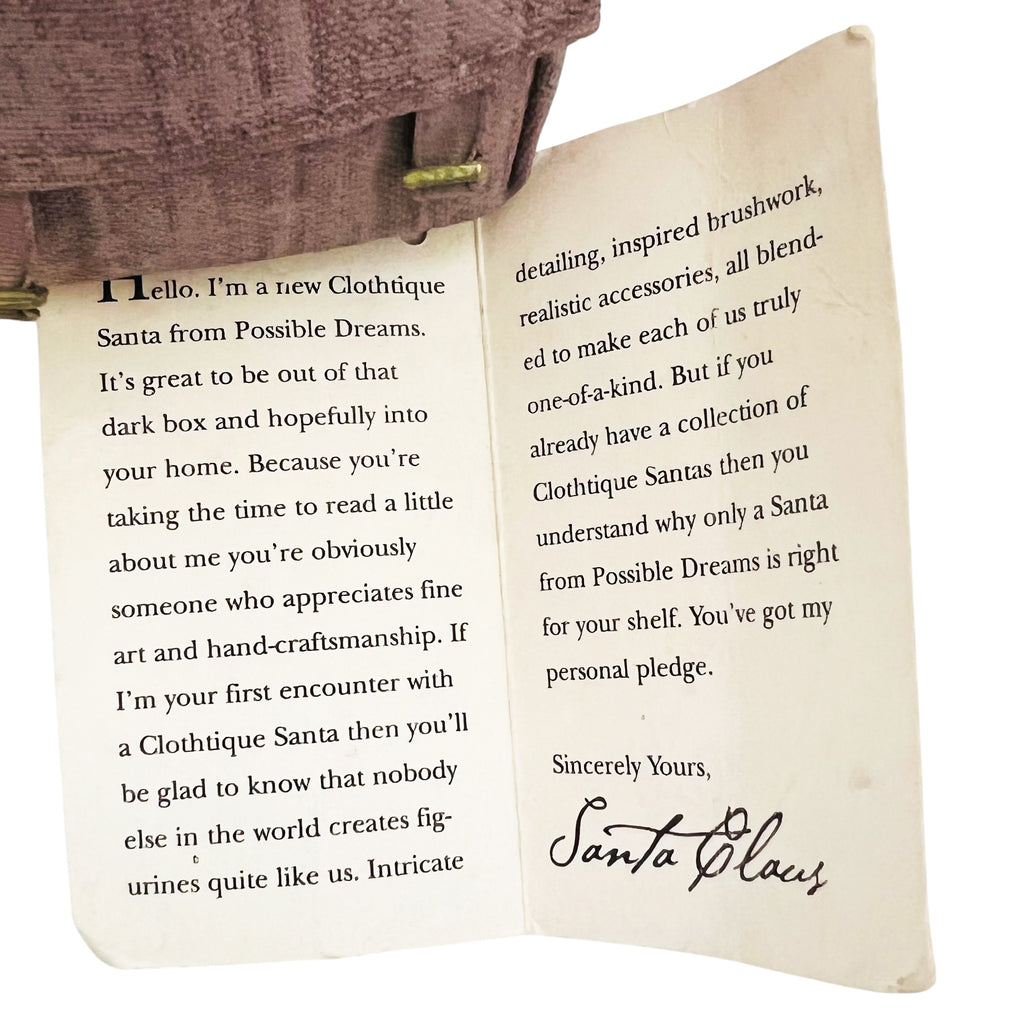 Hello. I'm a new Clothtique
Santa from Possible Dreams.
It's great to be out of that
dark box and hopefully into
your home. Because you're
taking the time to read a little
about me you're obviously
someone who appreciates fine
art and hand-craftsmanship. If
I'm your first encounter with
a Clothtique Santa then you'll
be glad to know that nobody
else in the world creates fig-
urines quite like us. Intricate
detailing, inspired brushwork,
realistic accessories, all blend-
ed to make each of us truly
one-of-a-kind. But if you
already have a collection of
Clothtique Santas then you
understand why only a Santa
from Possible Dreams is right
for your shelf. You've got my
personal pledge.
Sincerely Yours,
Santa Claus